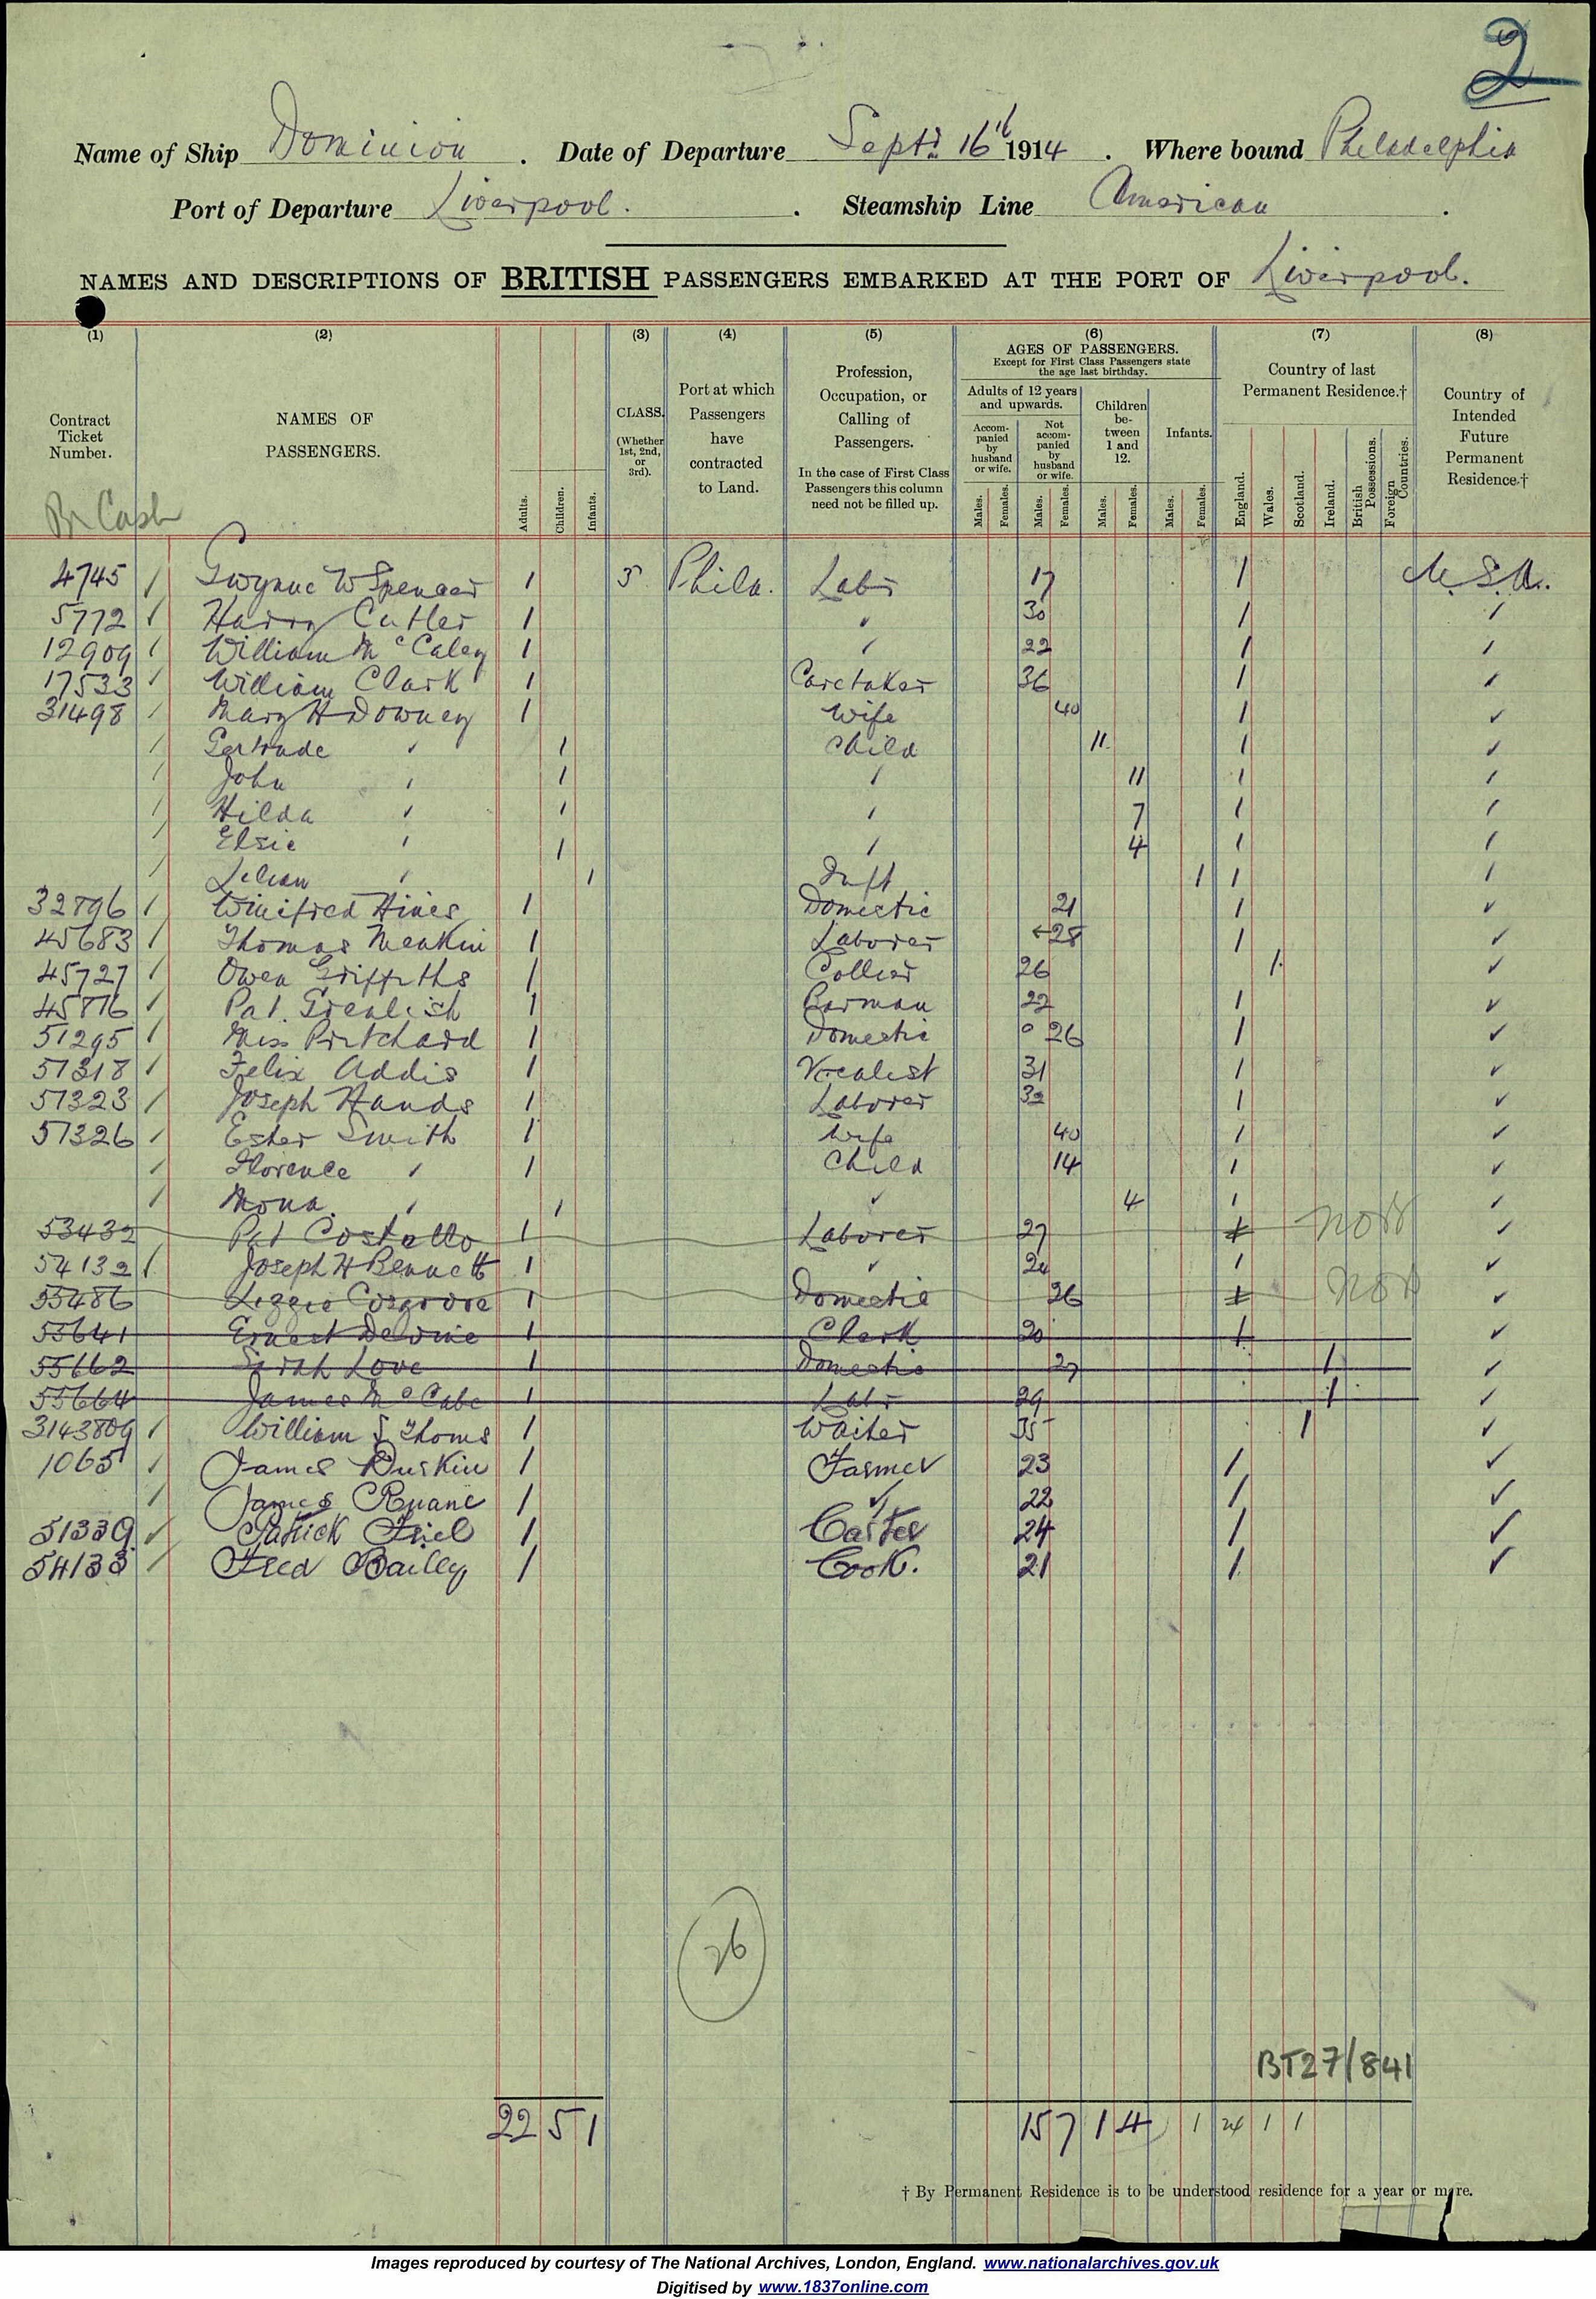 2
Name of Ship Dominion . Date of Departure Septr. 16th 1914 . Where bound Philadelphia
Port of Departure Liverpool . Steamship Line American .
NAMES AND DESCRIPTIONS OF BRITISH PASSENGERS EMBARKED AT THE PORT OF Liverpool.
(1) (2) (3) (4) (5) (6) (7) (8)
Contract Ticket Number.
NAMES OF PASSENGERS.
Adults. Children. Infants.
CLASS. (Whether 1st, 2nd, or 3rd).
Port at which Passengers have contracted to Land.
Profession, Occupation, or Calling of Passengers.
In the case of First Class Passengers this column need not be filled up.
AGES OF PASSENGERS.
Except for First Class Passengers state the age last birthday.
Adults of 12 years and upwards.
Accompanied by husband or wife.
Not accompanied by husband or wife.
Children between 1 and 12.
Infants.
Males. Females. Males. Females. Males. Females. Males. Females.
Country of last Permanent Residence.†
England. Wales. Scotland. Ireland. British Possessions. Foreign Countries.
Country of Intended Future Permanent Residence.†
Br Cash
4745 / Gwynne W Spencer 1 3 Phila. Labr 17 1 U.S.A.
5772 / Harry Cutler 1 " 30 1 "
12909 / William McCaley 1 " 22 1 "
17533 / William Clark 1 Caretaker 36 1 "
31498 / Mary H Downey 1 Wife 40 1 "
/ Gertrude " 1 Child 11 1 "
/ John " 1 " 11 1 "
/ Hilda " 1 " 7 1 "
/ Elsie " 1 " 4 1 "
/ Lilian " 1 Inft 1 1 "
32896 / Winifred Hines 1 Domestic 21 1 "
45683 / Thomas Meakin 1 Laborer ←28 1 "
45727 / Owen Griffiths 1 Collier 26 1 "
45816 / Pat. Grealish 1 Barman 22 1 "
51295 / Miss Pritchard 1 Domestic 26 1 "
51318 / Felix Addis 1 Vocalist 31 1 "
51323 / Joseph Hands 1 Laborer 32 1 "
51326 / Ester Smith 1 Wife 40 1 "
/ Florence " 1 Child 14 1 "
/ Mona " 1 " 4 1 "
53432 Pat Costello 1 Laborer 27 1 nos "
54132 / Joseph H Bennett 1 " 24 1 "
55486 Lizzie Cosgrove 1 Domestic 26 1 nos "
55641 Ernest Devine 1 Clerk 20 1 "
55662 Sarah Love 1 Domestic 27 1 "
55664 James McCabe 1 Labr 29 1 "
3143809 / William S Thoms 1 Waiter 35 1 "
1065 / James Durkin 1 Farmer 23 1 "
/ James Ruane 1 " 22 1 "
51339 / Patrick Friel 1 Carter 24 1 "
54133 / Fred Bailey 1 Cook. 21 1 "
26
BT27/841
22 5 1 15 7 1 4 1 24 1 1
† By Permanent Residence is to be understood residence for a year or more.
Images reproduced by courtesy of The National Archives, London, England. www.nationalarchives.gov.uk
Digitised by www.1837online.com